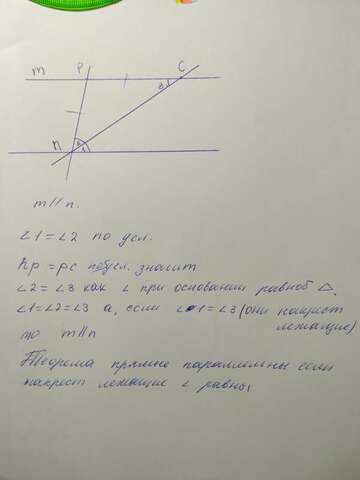 m P C
3
n 2 1
m // n.
∠1 = ∠2 по усл.
np = pc по усл. значит
∠2 = ∠3 как ∠ при основании равноб △.
∠1=∠2=∠3 а, если ∠1=∠3 (они накрест
лежащие)
то m//n
Теорема прямые параллельны если
накрест лежащие ∠ равны